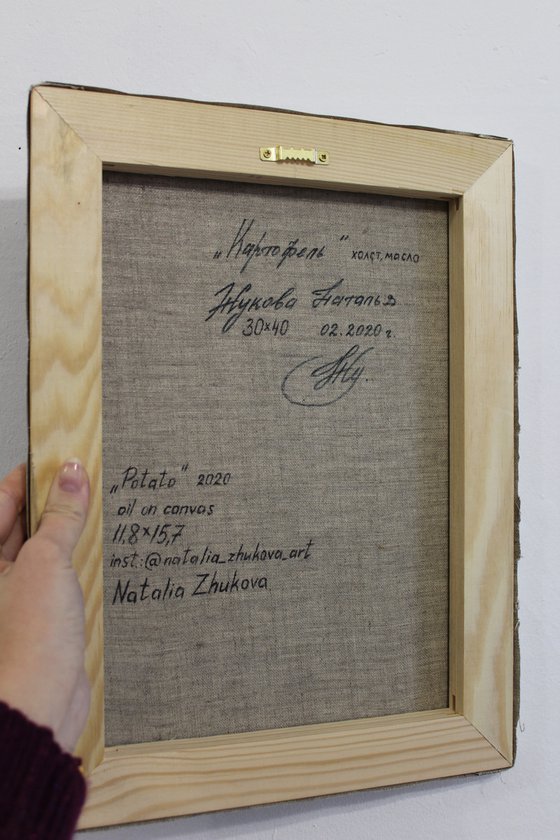 „Картофель" холст, масло
Жукова Наталья
30×40 02.2020 г.
Жу.
„Potato" 2020
oil on canvas
11,8×15,7
inst.:@natalia_zhukova_art
Natalia Zhukova